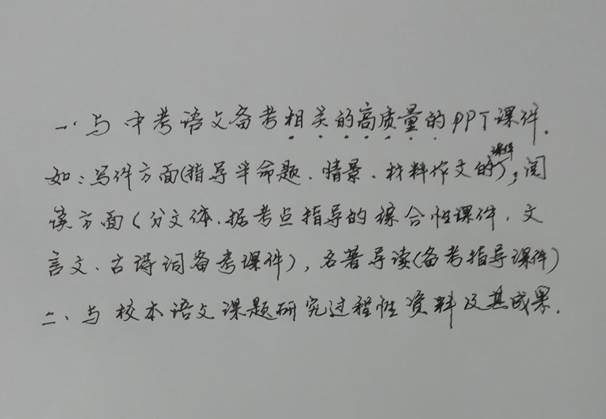 一、与中考语文备考相关的高质量的PPT课件。
如:写作方面(指导半命题、情景、材料作文的课件),阅
读方面(分文体、据考点指导的综合性课件、文
言文、古诗词备考课件),名著导读(备考指导课件)
二、与校本语文课题研究过程性资料及其成果。